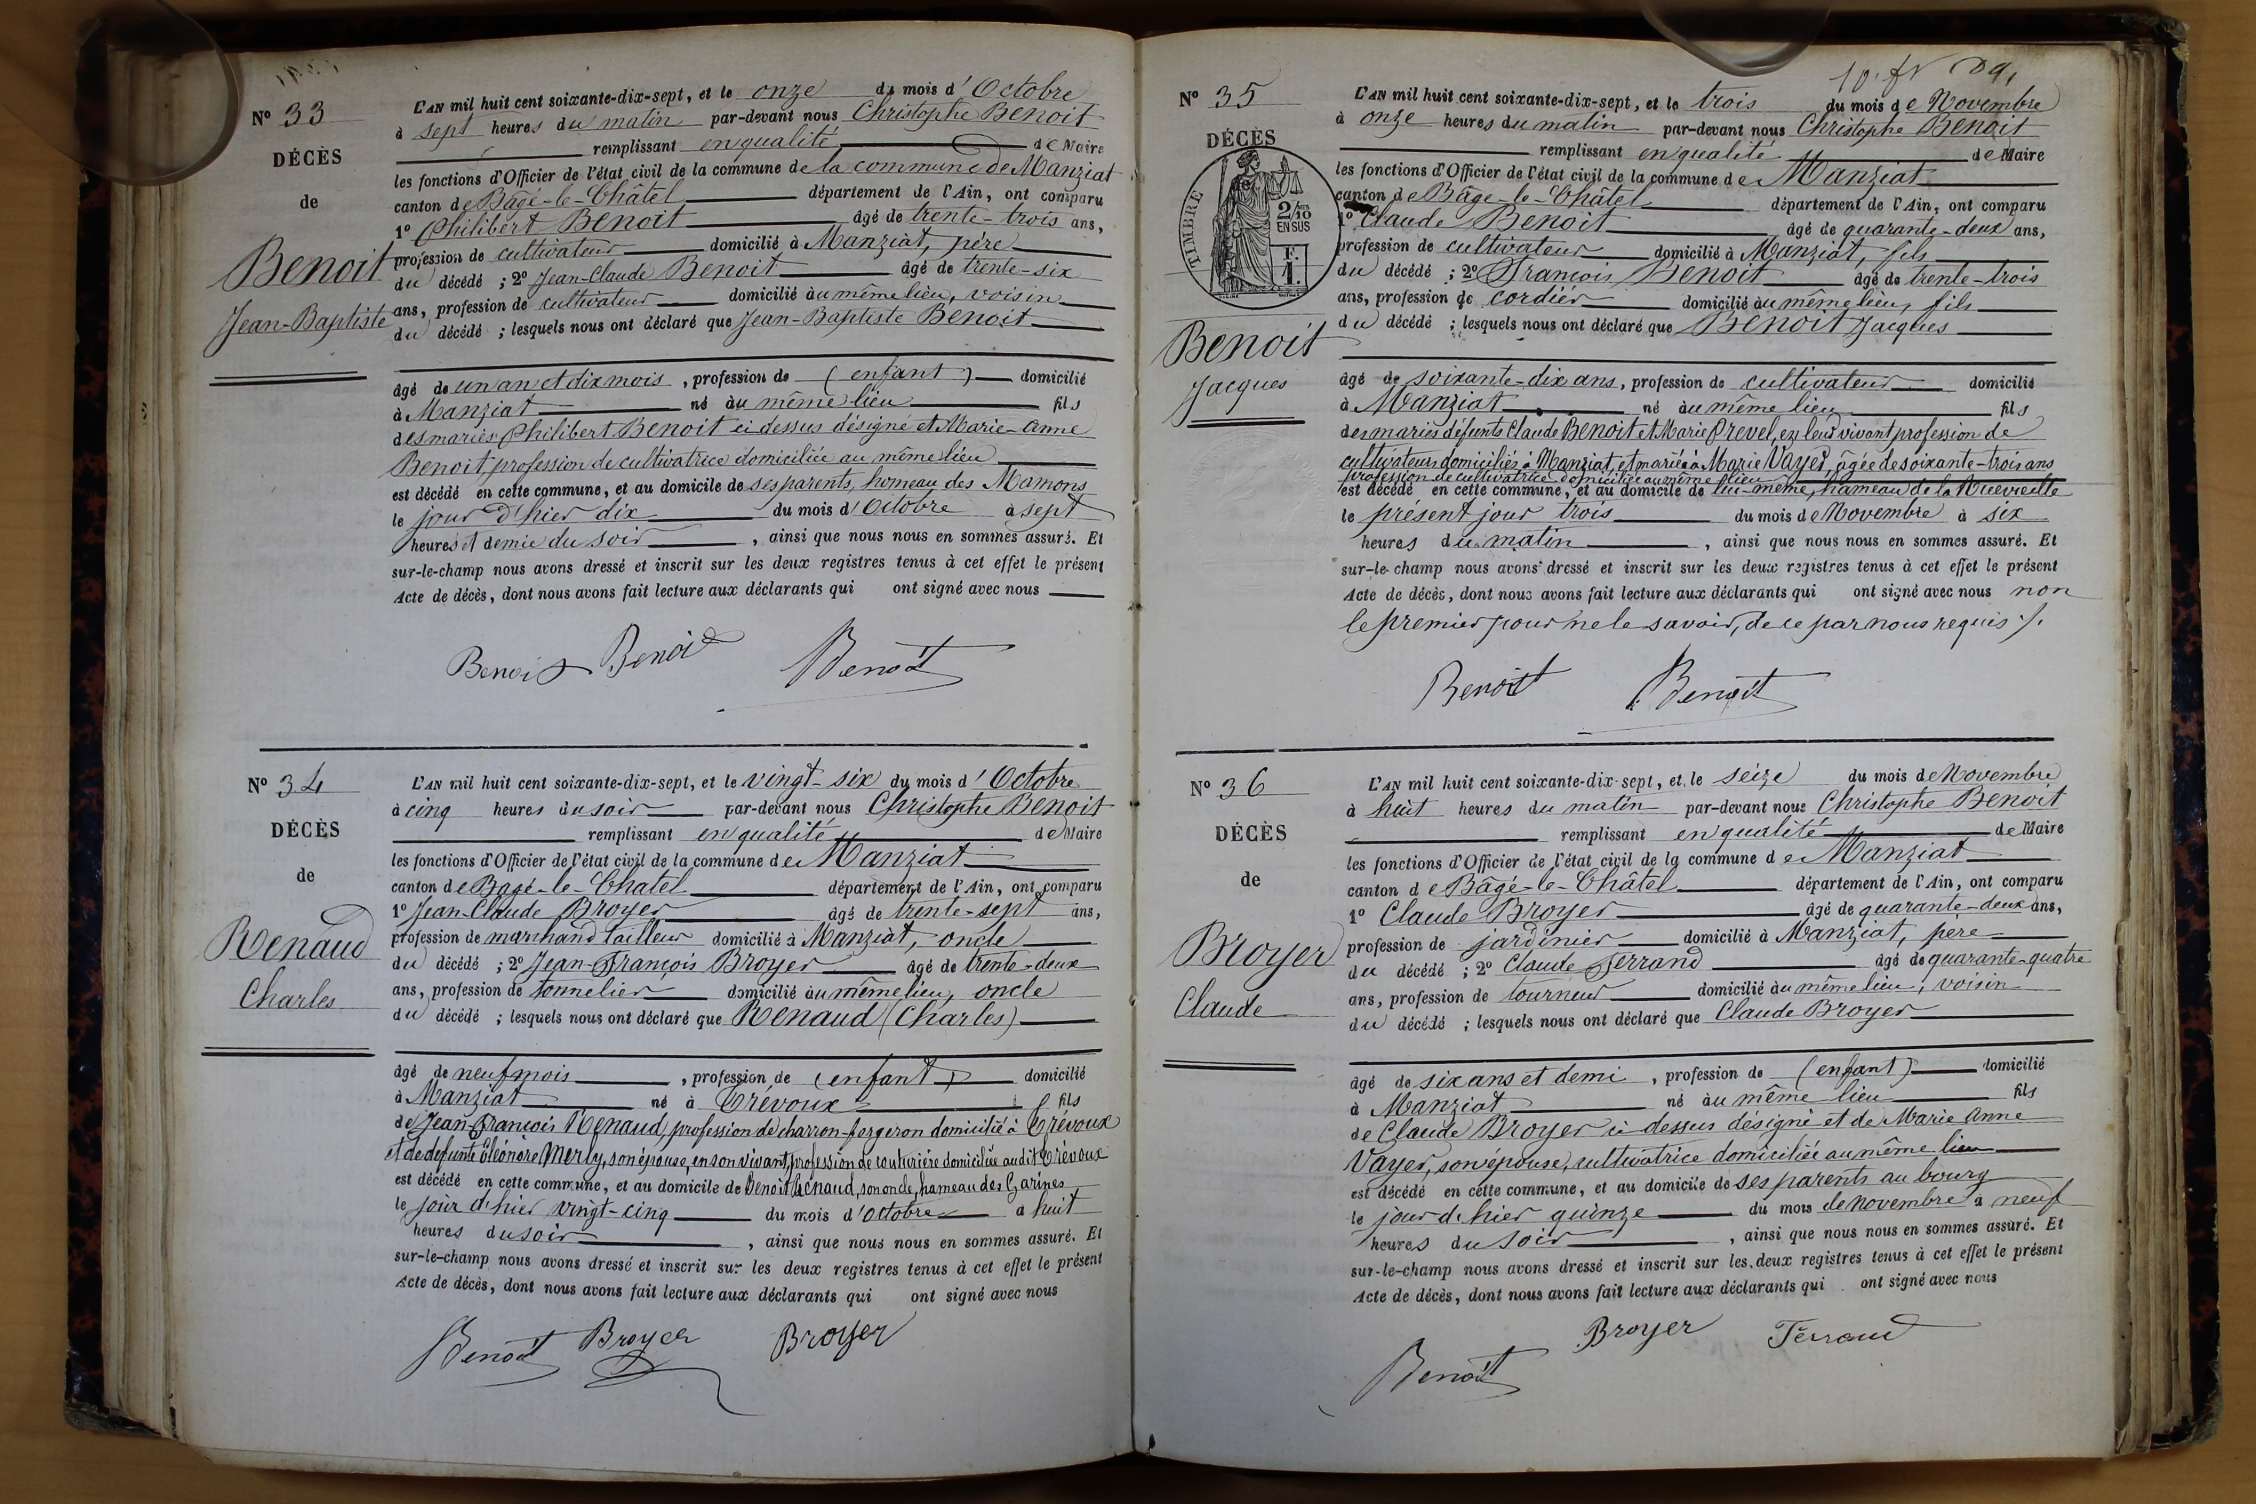 Nº 33
DÉCÈS
de
Benoit
Jean-Baptiste
L'AN mil huit cent soixante-dix-sept, et le onze du mois d'Octobre
à sept heures du matin par-devant nous Christophe Benoit
remplissant en qualité de Maire
les fonctions d'Officier de l'état civil de la commune de la commune de Manziat
canton de Bâgé-le-Châtel département de l'Ain, ont comparu
1º Philibert Benoit âgé de trente-trois ans,
profession de cultivateur domicilié à Manziat, père
du décédé ; 2º Jean-Claude Benoit âgé de trente-six
ans, profession de cultivateur domicilié au même lieu, voisin
du décédé ; lesquels nous ont déclaré que Jean-Baptiste Benoit
âgé de un an et dix mois, profession de (enfant) domicilié
à Manziat né au même lieu fils
des mariés Philibert Benoit ci-dessus désigné et Marie-Anne
Benoit, profession de cultivatrice domiciliée au même lieu
est décédé en cette commune, et au domicile de ses parents, hameau des Mamons
le jour d'hier dix du mois d'Octobre à sept
heures et demie du soir, ainsi que nous nous en sommes assuré. Et
sur-le-champ nous avons dressé et inscrit sur les deux registres tenus à cet effet le présent
Acte de décès, dont nous avons fait lecture aux déclarants qui ont signé avec nous
Benoit Benoit Benoit
Nº 34
DÉCÈS
de
Renaud
Charles
L'AN mil huit cent soixante-dix-sept, et le vingt-six du mois d'Octobre
à cinq heures du soir par-devant nous Christophe Benoit
remplissant en qualité de Maire
les fonctions d'Officier de l'état civil de la commune de Manziat
canton de Bagé-le-Chatel département de l'Ain, ont comparu
1º Jean-Claude Broyer âgé de trente-sept ans,
profession de marchand tailleur domicilié à Manziat, oncle
du décédé ; 2º Jean-François Broyer âgé de trente-deux
ans, profession de tonnelier domicilié au même lieu, oncle
du décédé ; lesquels nous ont déclaré que Renaud (Charles)
âgé de neuf mois, profession de (enfant) domicilié
à Manziat né à Trevoux fils
de Jean-François Renaud, profession de charron-forgeron domicilié à Trévoux
et de defunte Eléonore Merly, son épouse, en son vivant, profession de couturière domiciliée audit Trévoux
est décédé en cette commune, et au domicile de Benoit Renaud, son oncle, hameau des Garines
le jour d'hier vingt-cinq du mois d'Octobre à huit
heures du soir, ainsi que nous nous en sommes assuré. Et
sur-le-champ nous avons dressé et inscrit sur les deux registres tenus à cet effet le présent
Acte de décès, dont nous avons fait lecture aux déclarants qui ont signé avec nous
Benoit Broyer Broyer
Nº 35
DÉCÈS
TIMBRE
2/10
EN SUS
F.
1.
Benoit
Jacques
L'AN mil huit cent soixante-dix-sept, et le trois du mois de Novembre
à onze heures du matin par-devant nous Christophe Benoit
remplissant en qualité de Maire
les fonctions d'Officier de l'état civil de la commune de Manziat
canton de Bâgé-le-Châtel département de l'Ain, ont comparu
1º Claude Benoit âgé de quarante-deux ans,
profession de cultivateur domicilié à Manziat, fils
du décédé ; 2º François Benoit âgé de trente-trois
ans, profession de cordier domicilié au même lieu, fils
du décédé ; lesquels nous ont déclaré que Benoit Jacques
âgé de soixante-dix ans, profession de cultivateur domicilié
à Manziat né au même lieu fils
des mariés défunts Claude Benoit et Marie Prevel, en leur vivant profession de
cultivateurs domiciliés à Manziat, et marié à Marie Vayer, âgée de soixante-trois ans
profession de cultivatrice domiciliée au même lieu
est décédé en cette commune, et au domicile de lui-même, hameau de la
le présent jour trois du mois de Novembre à six
heures du matin, ainsi que nous nous en sommes assuré. Et
sur-le-champ nous avons dressé et inscrit sur les deux registres tenus à cet effet le présent
Acte de décès, dont nous avons fait lecture aux déclarants qui ont signé avec nous non
le premier pour ne le savoir, de ce par nous requis ./.
Benoit Benoit
Nº 36
DÉCÈS
de
Broyer
Claude
L'AN mil huit cent soixante-dix-sept, et le seize du mois de Novembre
à huit heures du matin par-devant nous Christophe Benoit
remplissant en qualité de Maire
les fonctions d'Officier de l'état civil de la commune de Manziat
canton de Bâgé-le-Châtel département de l'Ain, ont comparu
1º Claude Broyer âgé de quarante-deux ans,
profession de jardinier domicilié à Manziat, père
du décédé ; 2º Claude Ferrand âgé de quarante-quatre
ans, profession de tourneur domicilié au même lieu, voisin
du décédé ; lesquels nous ont déclaré que Claude Broyer
âgé de six ans et demi, profession de (enfant) domicilié
à Manziat né au même lieu fils
de Claude Broyer ci-dessus désigné et de Marie Anne
Vayer, son épouse, cultivatrice domiciliée au même lieu
est décédé en cette commune, et au domicile de ses parents au bourg
le jour d'hier quinze du mois de novembre à neuf
heures du soir, ainsi que nous nous en sommes assuré. Et
sur-le-champ nous avons dressé et inscrit sur les deux registres tenus à cet effet le présent
Acte de décès, dont nous avons fait lecture aux déclarants qui ont signé avec nous
Benoit Broyer Ferrand